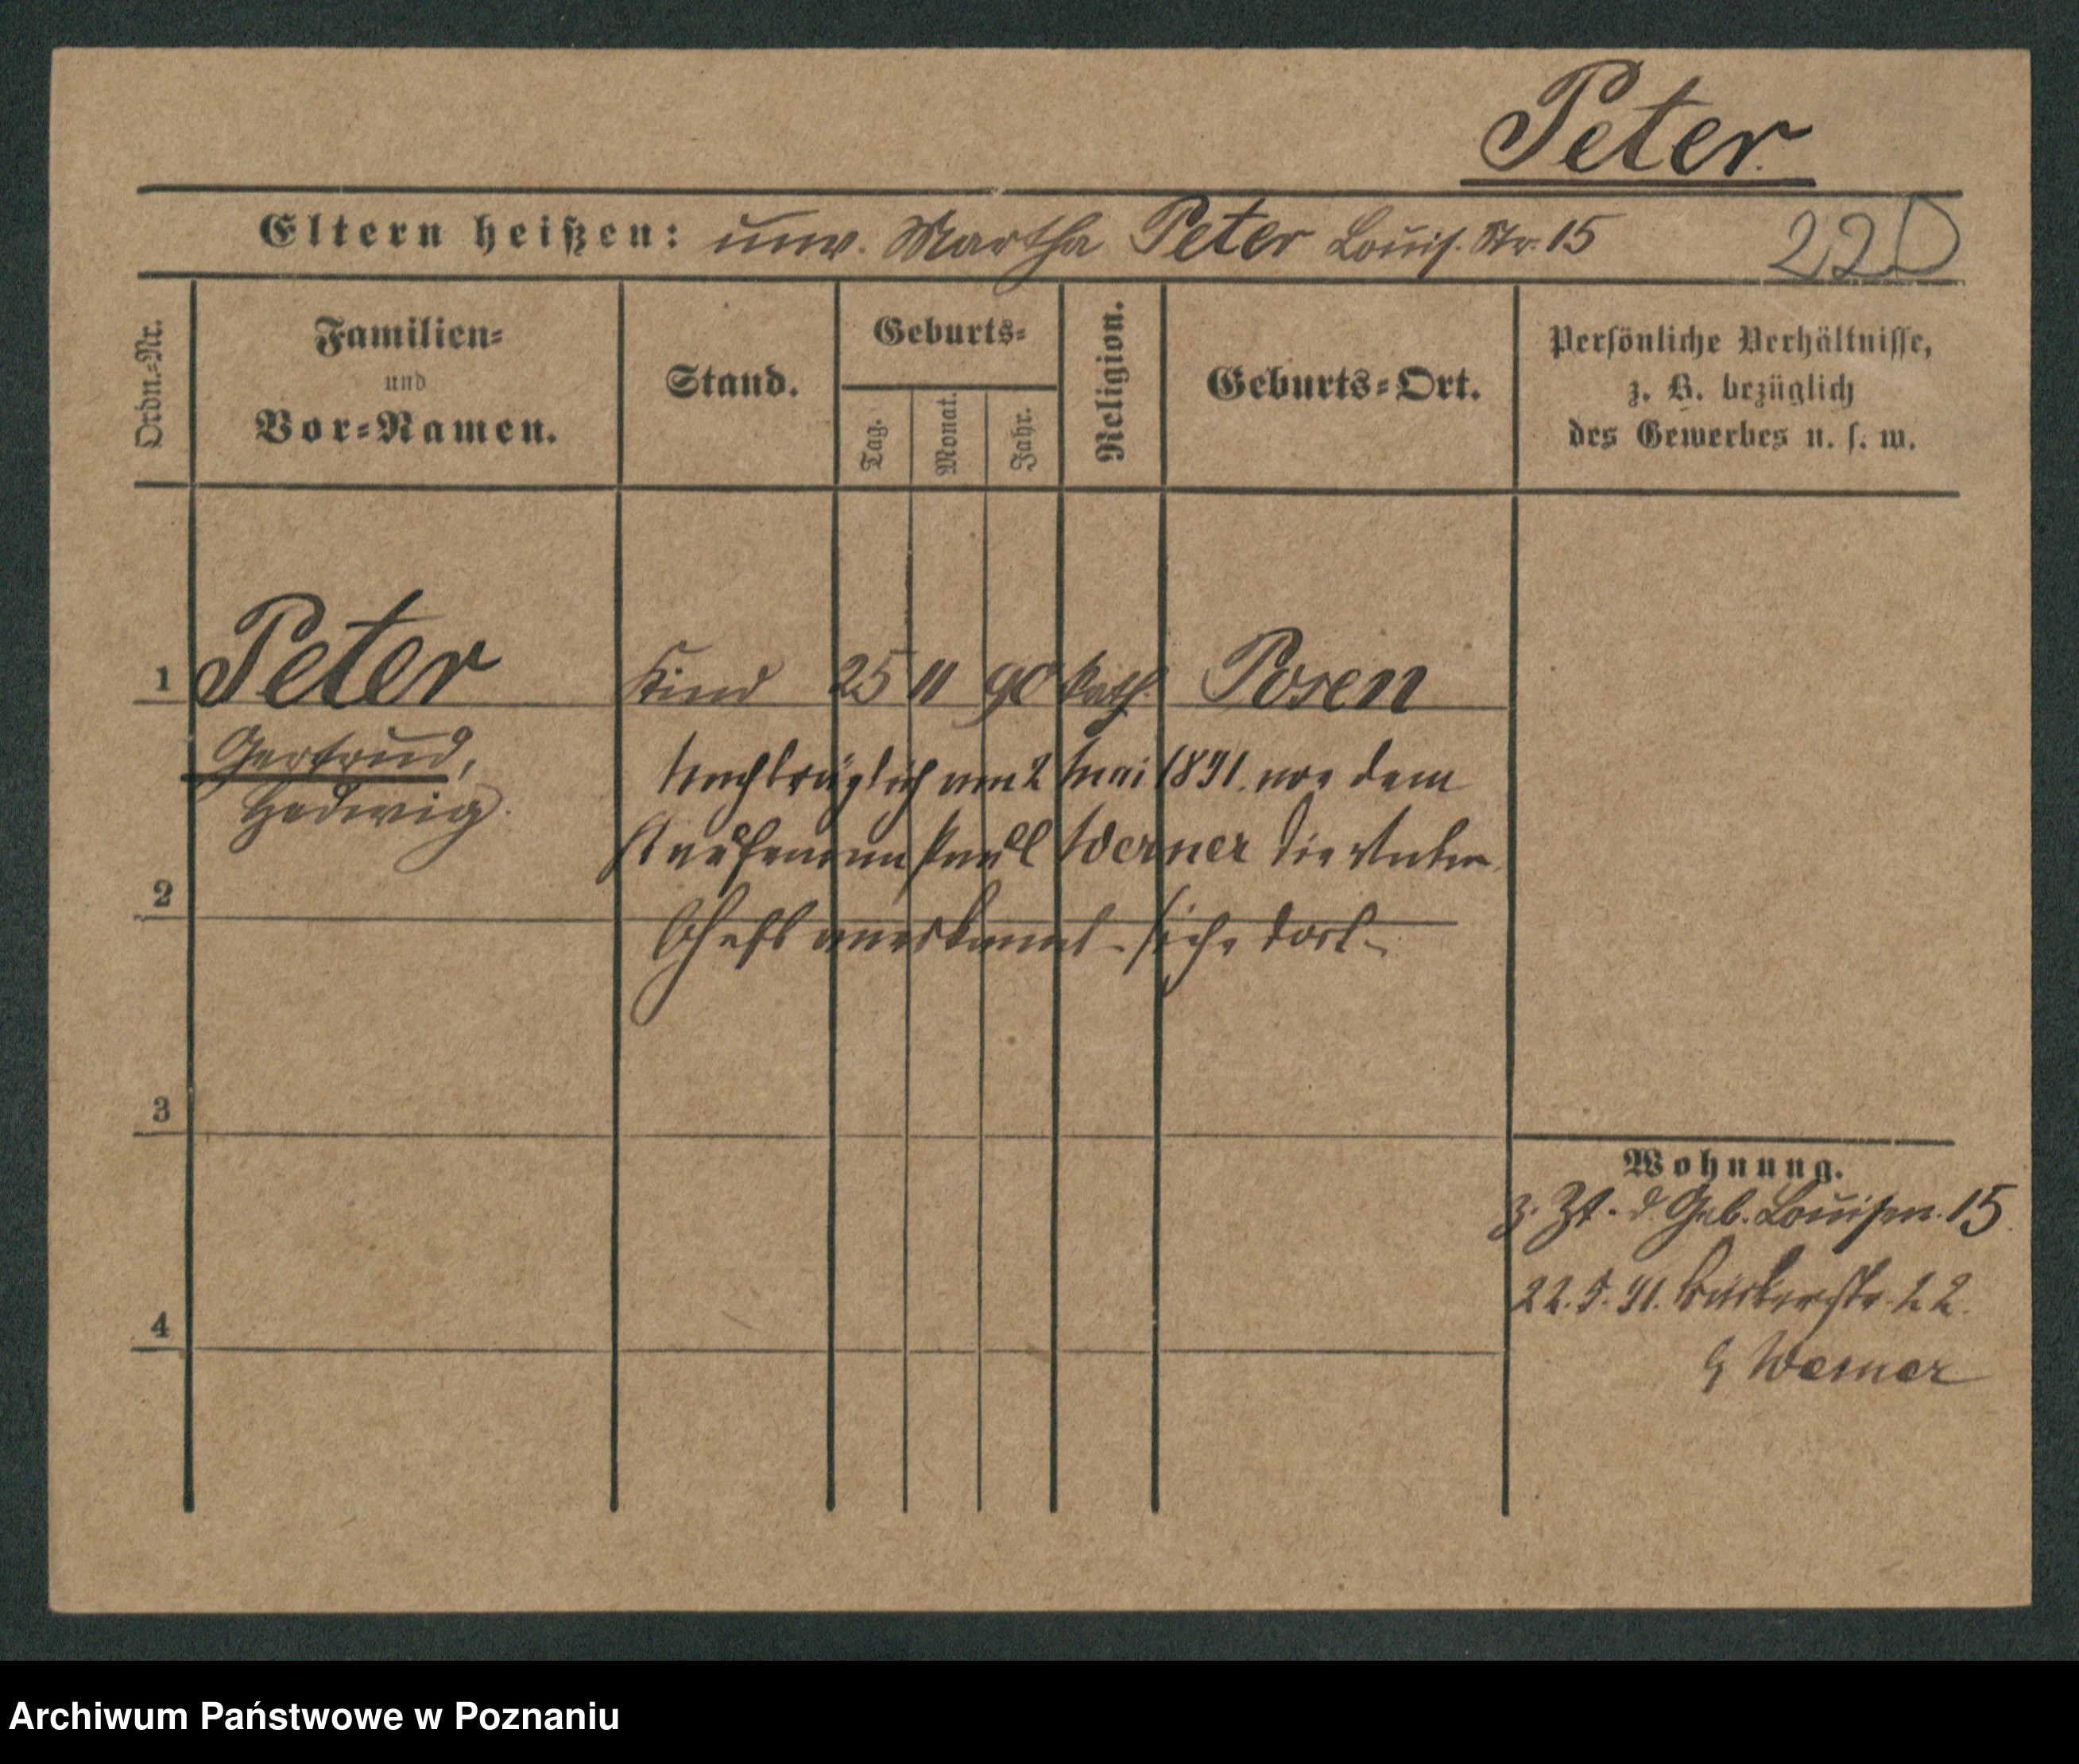 Peter
Eltern heißen: unv. Martha Peter Louis. Str. 15
220
Ordn.=Nr.
Familien=
und
Vor=Namen.
Stand.
Geburts=
Tag.
Monat.
Jahr.
Religion.
Geburts=Ort.
Persönliche Verhältnisse,
z. B. bezüglich
des Gewerbes u. s. w.
1 Peter Kind 25 11 90 kath. Posen
Gertrud,
Hedwig.
Nachträglich am 2 Mai 1891. von dem
Kaufmann Paul Werner die Vater
schaft anerkannt - siehe dort -
2
3
4
Wohnung.
z. Zt. d. Geb. Louisen. 15
22. 5. 91. 22.
Werner
Archiwum Państwowe w Poznaniu